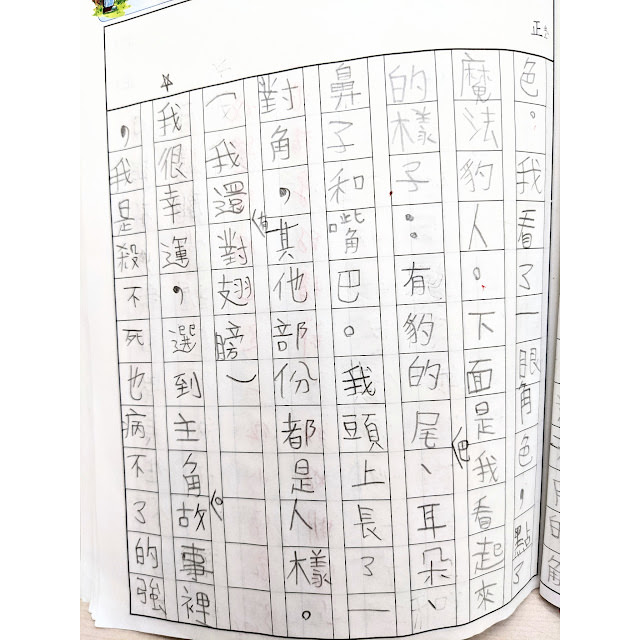 正
色。我看了一眼角色,點了
魔法豹人。下面是我看起來
的樣子:有豹的尾巴、耳朵、
鼻子和嘴巴。我頭上長了一
對角,其他部份都是人樣。
(我還有對翅膀)
我很幸運,選到主角的故事裡
,我是殺不死也病不了的強